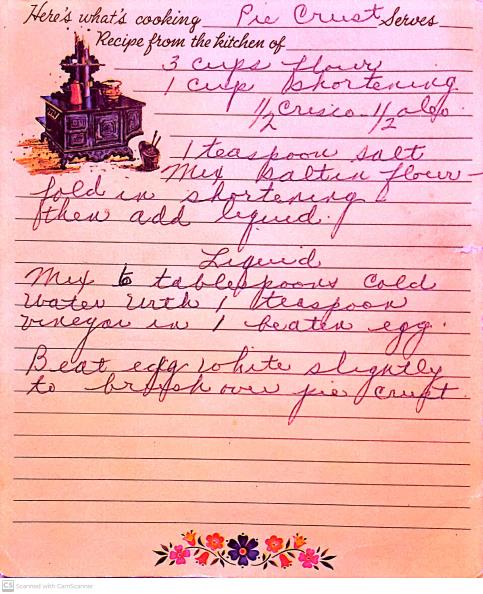 Here's what's cooking Pie Crust Serves
Recipe from the kitchen of
3 cups flour
1 cup shortening
1/2 Crisco - 1/2
1 teaspoon salt
Mix salt in flour -
fold in shortening
then add liquid.
Liquid
Mix 6 tablespoons Cold
Water With 1 teaspoon
vinegar in 1 beaten egg.
Beat egg white slightly
to brush over pie crust.
CS Scanned with CamScanner